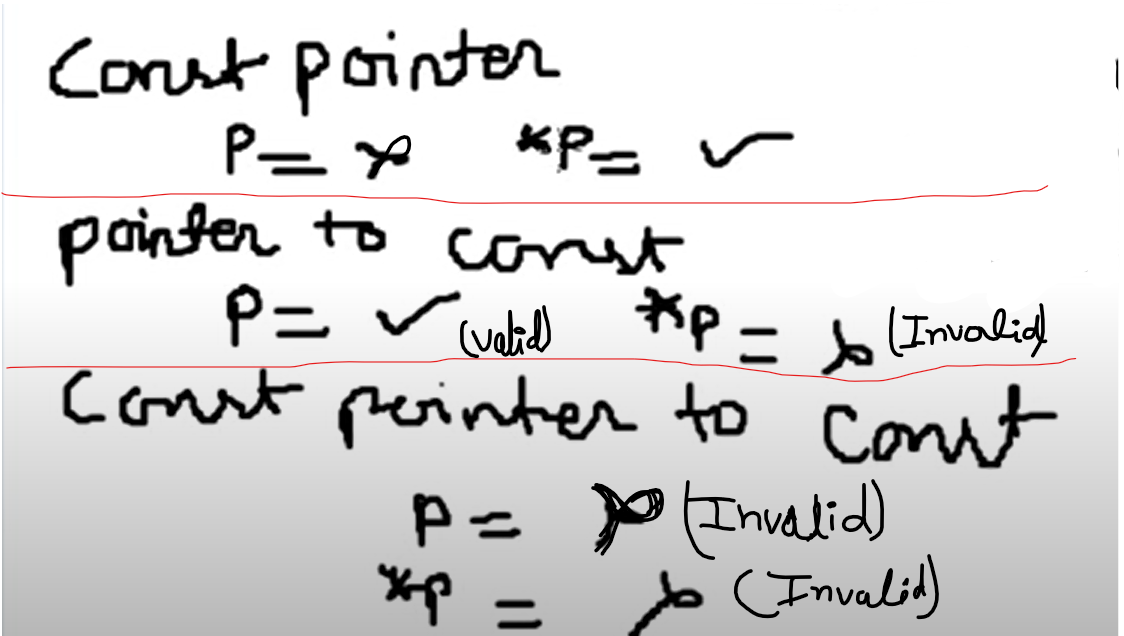 Const pointer
P = ✗ *P = ✓
pointer to const
P = ✓ (valid) *P = ✗ (Invalid)
Const pointer to Const
P = ✗ (Invalid)
*P = ✗ (Invalid)